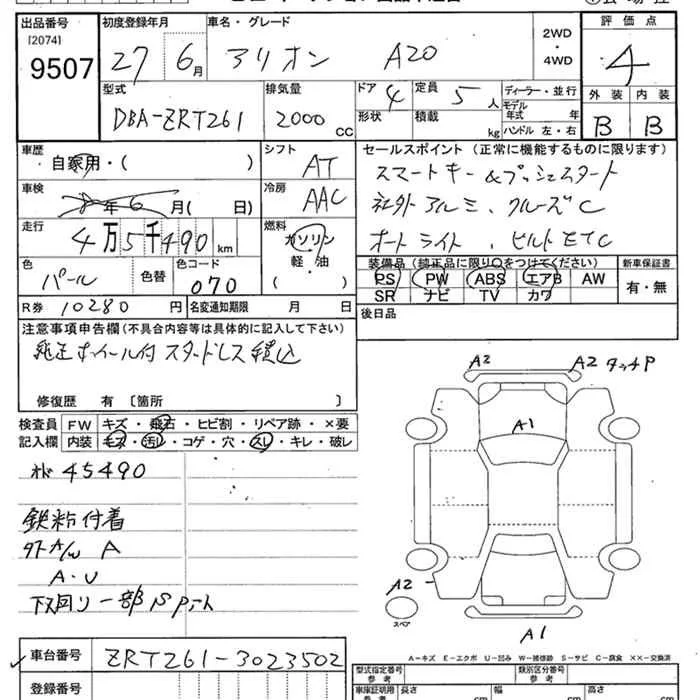 出品番号 [2074] 9507
初度登録年月 27 6月
車名・グレード アリオン A20
2WD・4WD
評価点 4
外装 B 内装 B
型式 DBA-ZRT261
排気量 2000 CC
ドア 4 形状
定員 5人 積載 kg
ディーラー・並行
モデル年式 年
ハンドル 左・右
車歴 自家用・( )
シフト AT
セールスポイント (正常に機能するものに限ります)
スマートキー &プッシュスタート
社外アルミ、クルーズC
オートライト、ビルトETC
車検 年6月( 日)
冷房 AAC
走行 4万5千490km
燃料 ガソリン 軽・油 ( )
色 パール 色替
色コード 070
装備品 (純正品に限り○をつけてください)
PS PW ABS エアB AW
SR ナビ TV カワ
新車保証書 有・無
R券 10280円
名変通知期限 月 日
後日品
注意事項申告欄 (不具合内容等は具体的に記入して下さい)
純正ホイール付スタッドレス積込
修復歴 有 〔箇所 〕
検査員記入欄
FW キズ・飛石・ヒビ割・リペア跡・×要
内装 キズ・汚レ・コゲ・穴・スレ・キレ・破レ
45490
鉄粉付着
外A/W A
A・U
下回り一部Sアト
A2
A2 タッチP
A1
A2
スペア
A1
A-キズ E-エクボ U-凹み W-補修跡 S-サビ C-腐食 ××-交換済
車台番号 ZRT261-3023502
登録番号
型式指定番号 参考
類別区分番号 参考
車庫証明用 参考 長さ cm 幅 cm 高さ cm